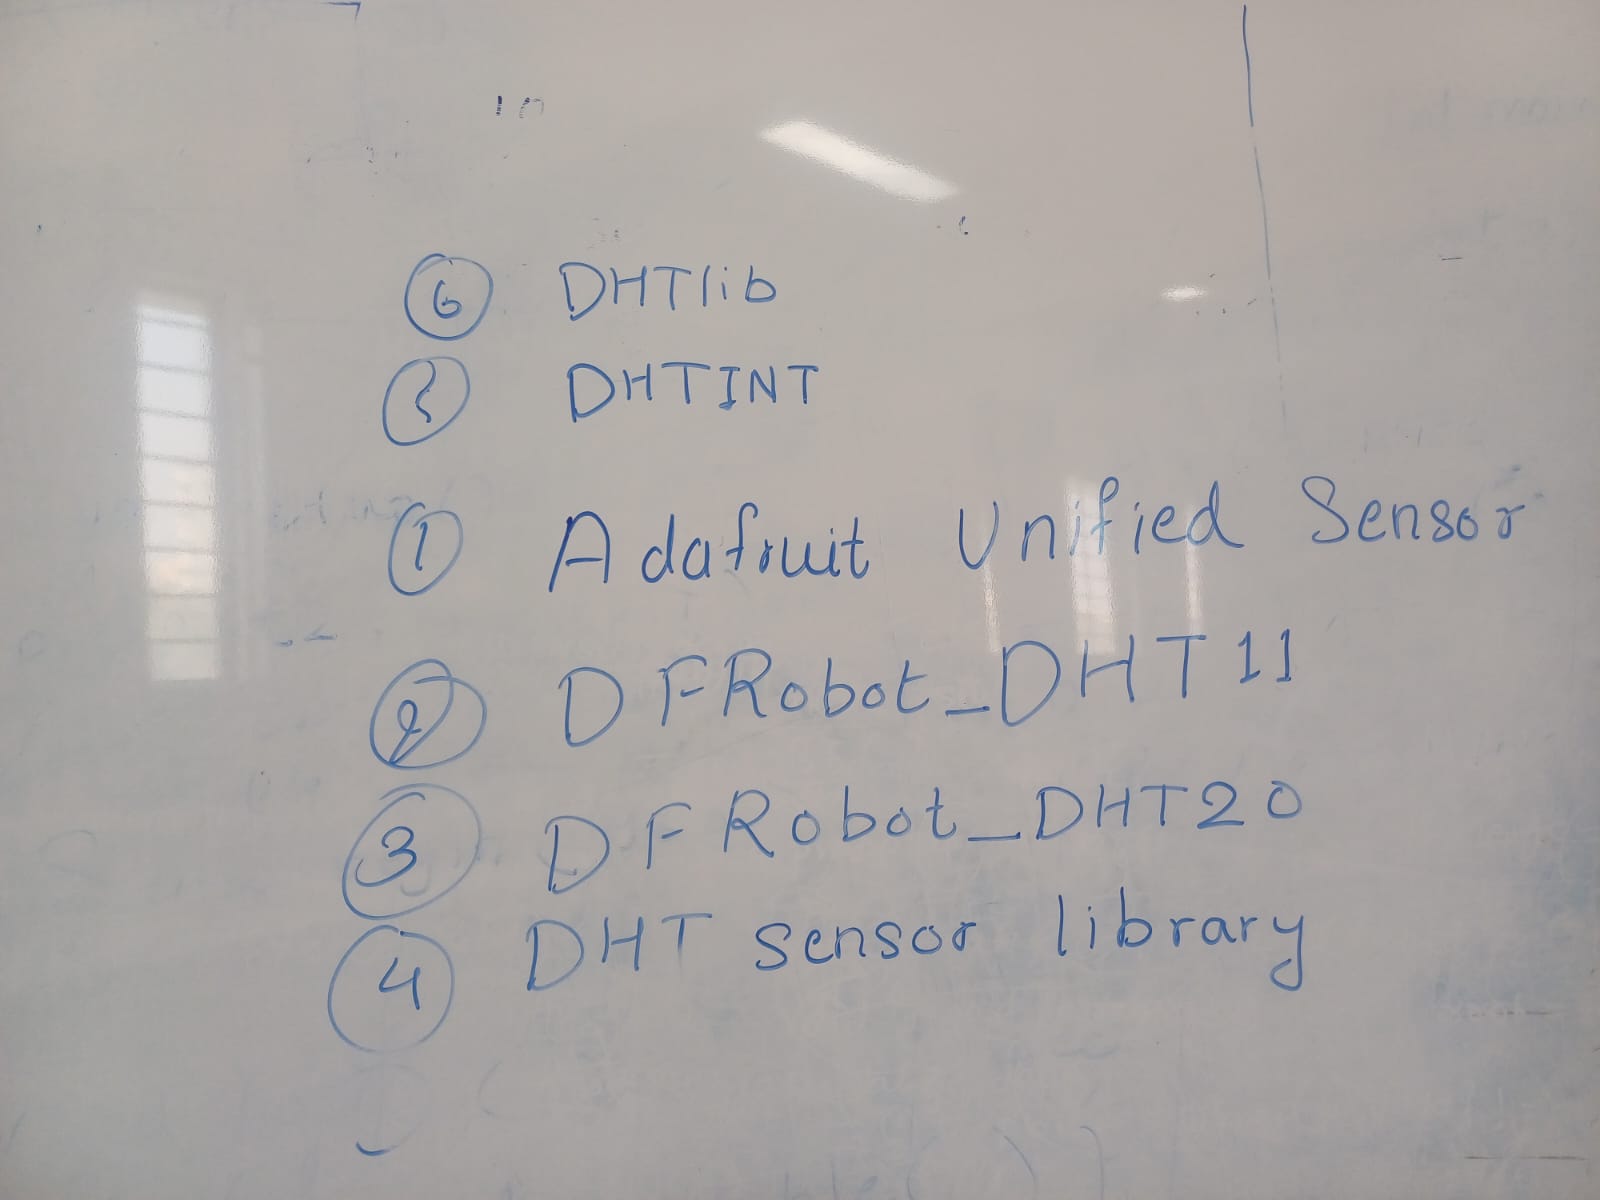 6 DHTlib
DHTINT
1 Adafruit Unified Sensor
2 DFRobot_DHT11
3 DFRobot_DHT20
4 DHT sensor library